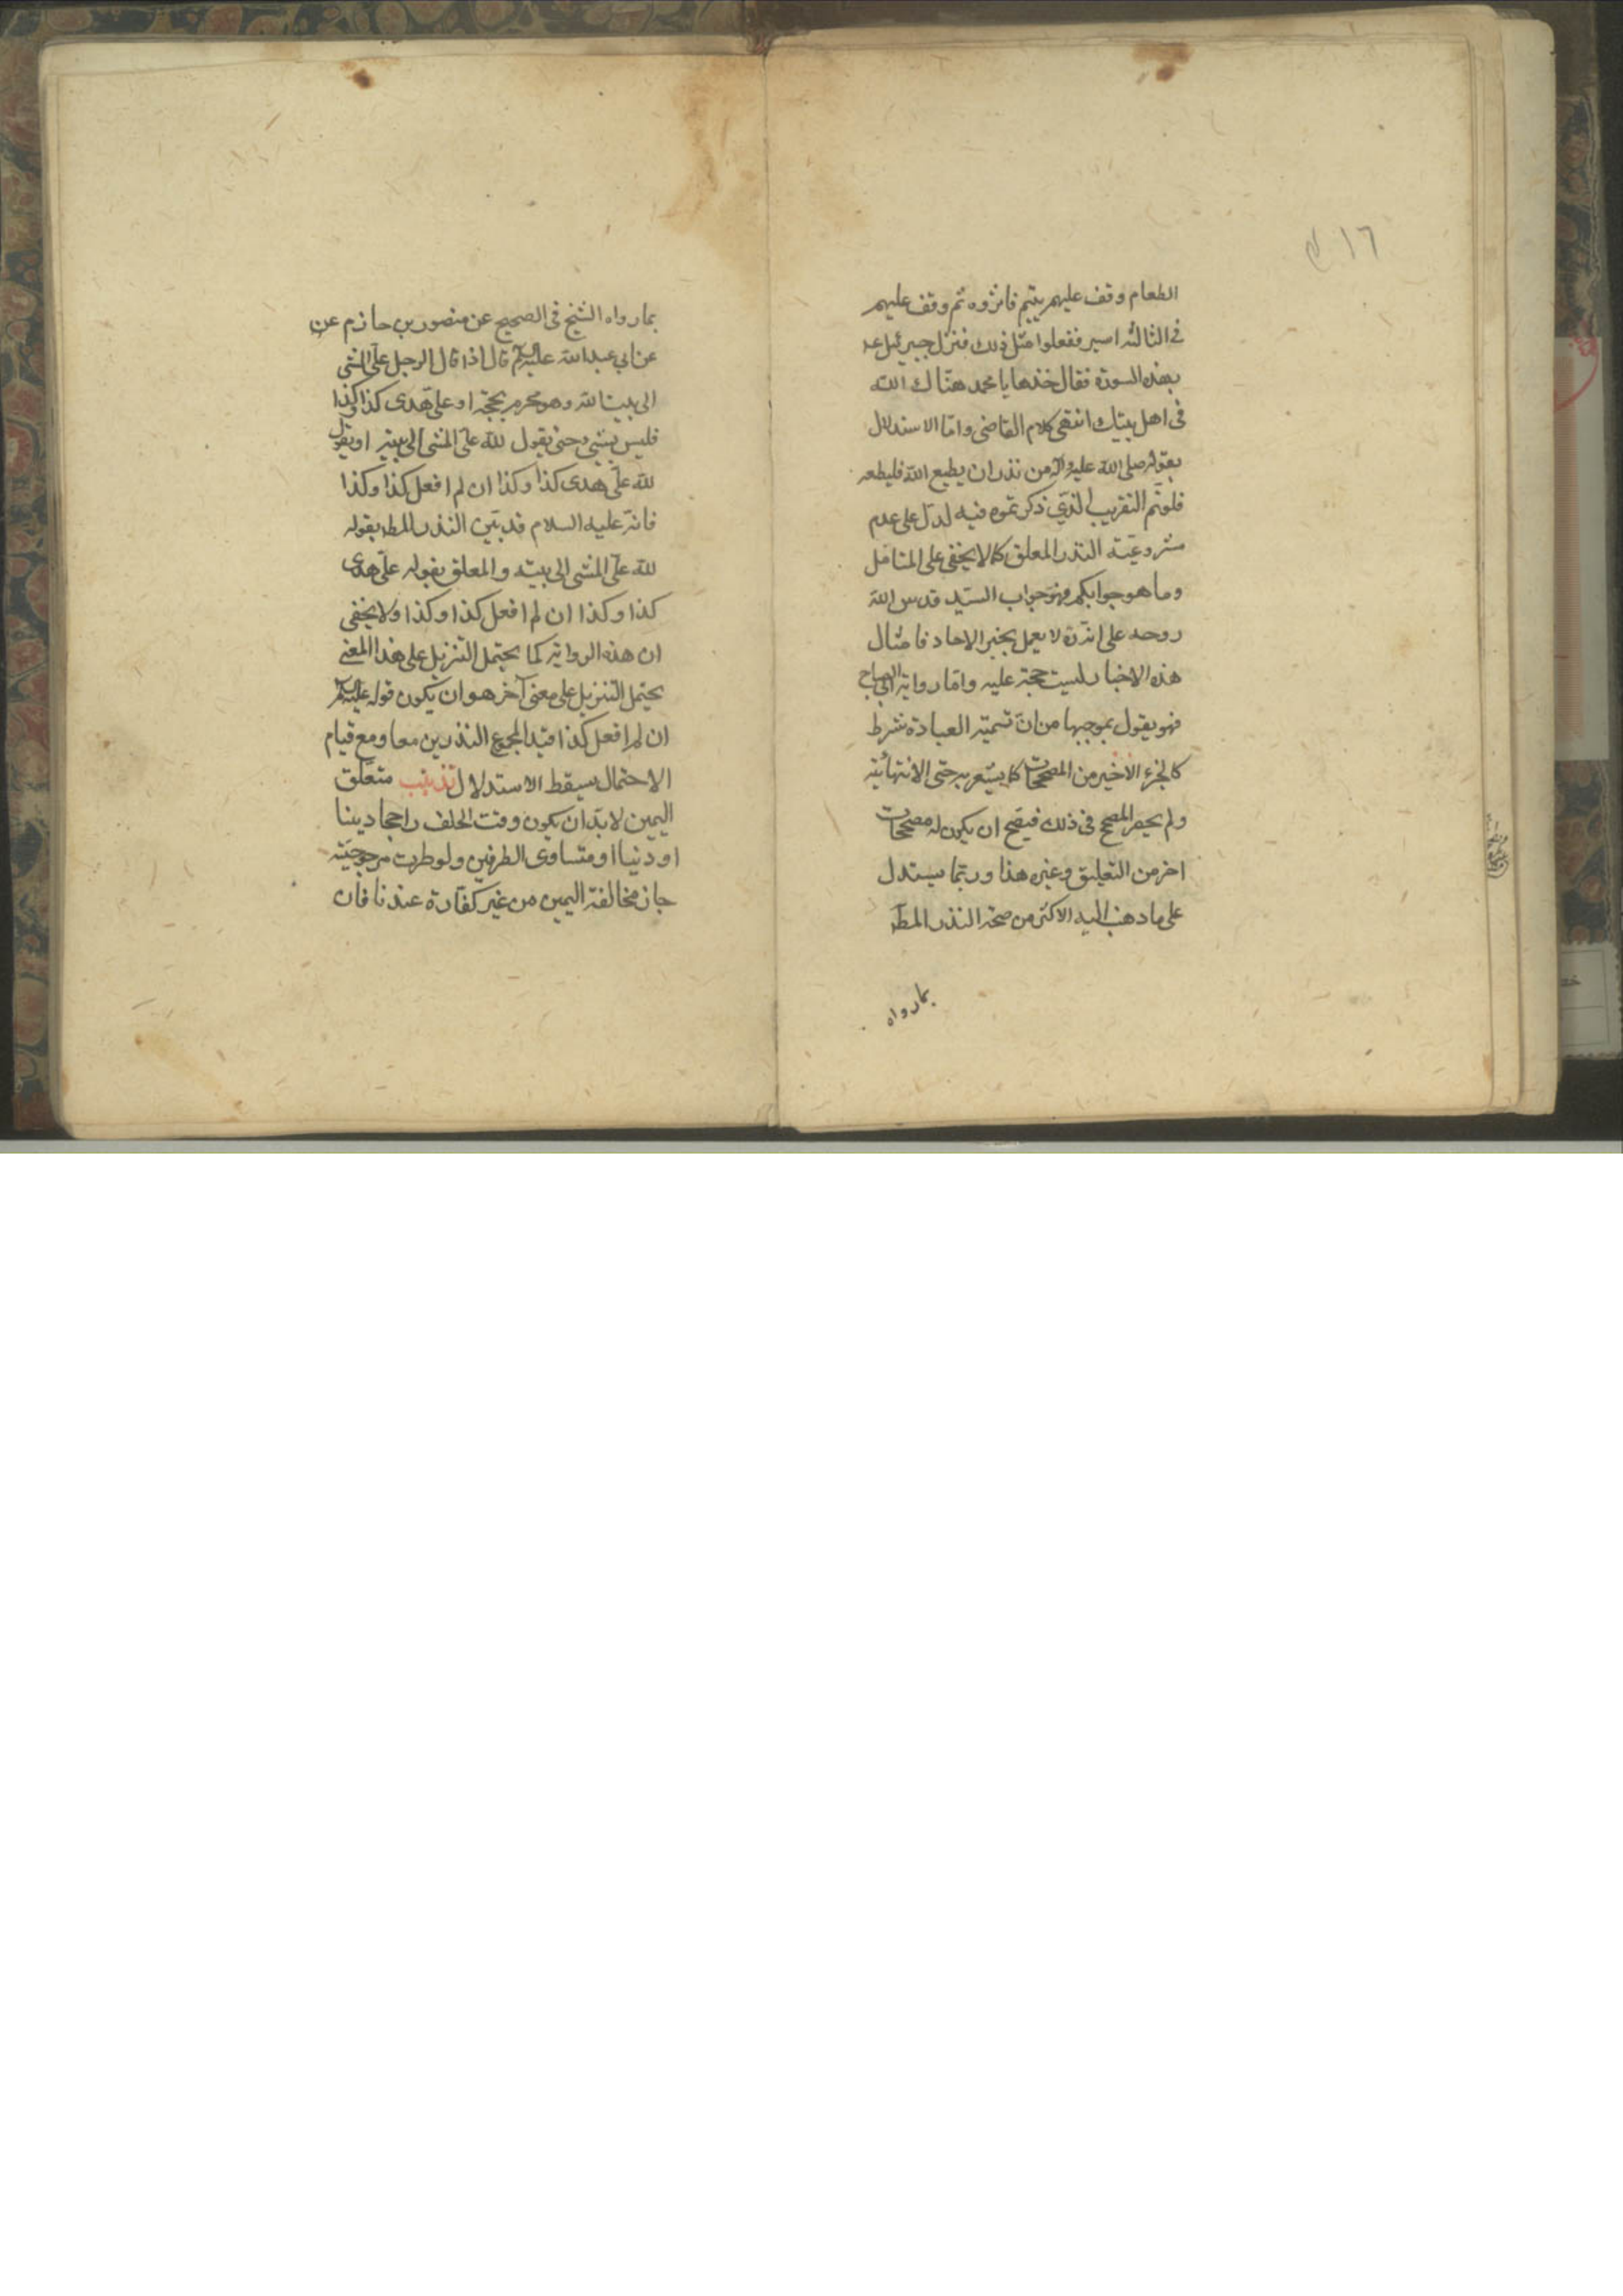 ١٦
الطعام وقف عليهم يتيم فاثروه ثم وقف عليهم
فى الثالثه اسير ففعلوا مثل ذلك فنزل جبرئيل عه
بهذه السورة فقال خذها يا محمد هنّاك الله
فى اهل بيتك انتهى كلام القاضى وامّا الاستدلال
بقوله صلى الله عليه وآله من نذر ان يطيع الله فليطعه
فلو تم التقريب الذي ذكرتموه فيه لدلّ على عدم
مشروعيّة النذر المعلق كما لا يخفى على المتامل
وما هو جوابكم فهو جواب السيّد قدس الله
روحه على انّه ره لا يعمل بخبر الاحاد فامثال
هذه الاخبار ليست حجة عليه وامّا رواية ابى الصباح
فهو يقول بموجبها من انّ تسمية العبادة شرط
كالجزء الاخير من المصححات كما يشعر به حتى الانتهائيّه
ولم يحصر المصحح فى ذلك فيصّح ان يكون له مصححات
اخر من التعليق وغيره هذا وربّما يستدل
على ما ذهب اليه الاكثر من صحة النذر المط
بما رواه
بما رواه الشيخ فى الصحيح عن منصور بن حازم عن
عن ابى عبد الله عليه السلام قال اذا قال الرجل علىّ المشى
الى بيت الله وهو محرم بحجّة او علىّ هدى كذا وكذا
فليس بشيء حتى يقول لله علىّ المشى الى بيته او يقول
لله علىّ هدى كذا وكذا ان لم افعل كذا وكذا
فانّه عليه السلام قد بيّن النذر المط بقوله
لله علىّ المشى الى بيته والمعلق بقوله علىّ هدى
كذا وكذا ان لم افعل كذا وكذا ولا يخفى
ان هذه الرواية كما يحتمل التنزيل على هذا المعنى
يحتمل التنزيل على معنى آخر هو ان يكون قوله عليه السلام
ان لم افعل كذا قيدا لمجموع النذرين معا ومع قيام
الاحتمال يسقط الاستدلال تذنيب متعلق
اليمين لا بدّ ان يكون وقت الحلف راجحا دينا
او دنيا او متساوى الطرفين ولو طرت مرجوحيّته
جاز مخالفة اليمين من غير كفّارة عندنا فان